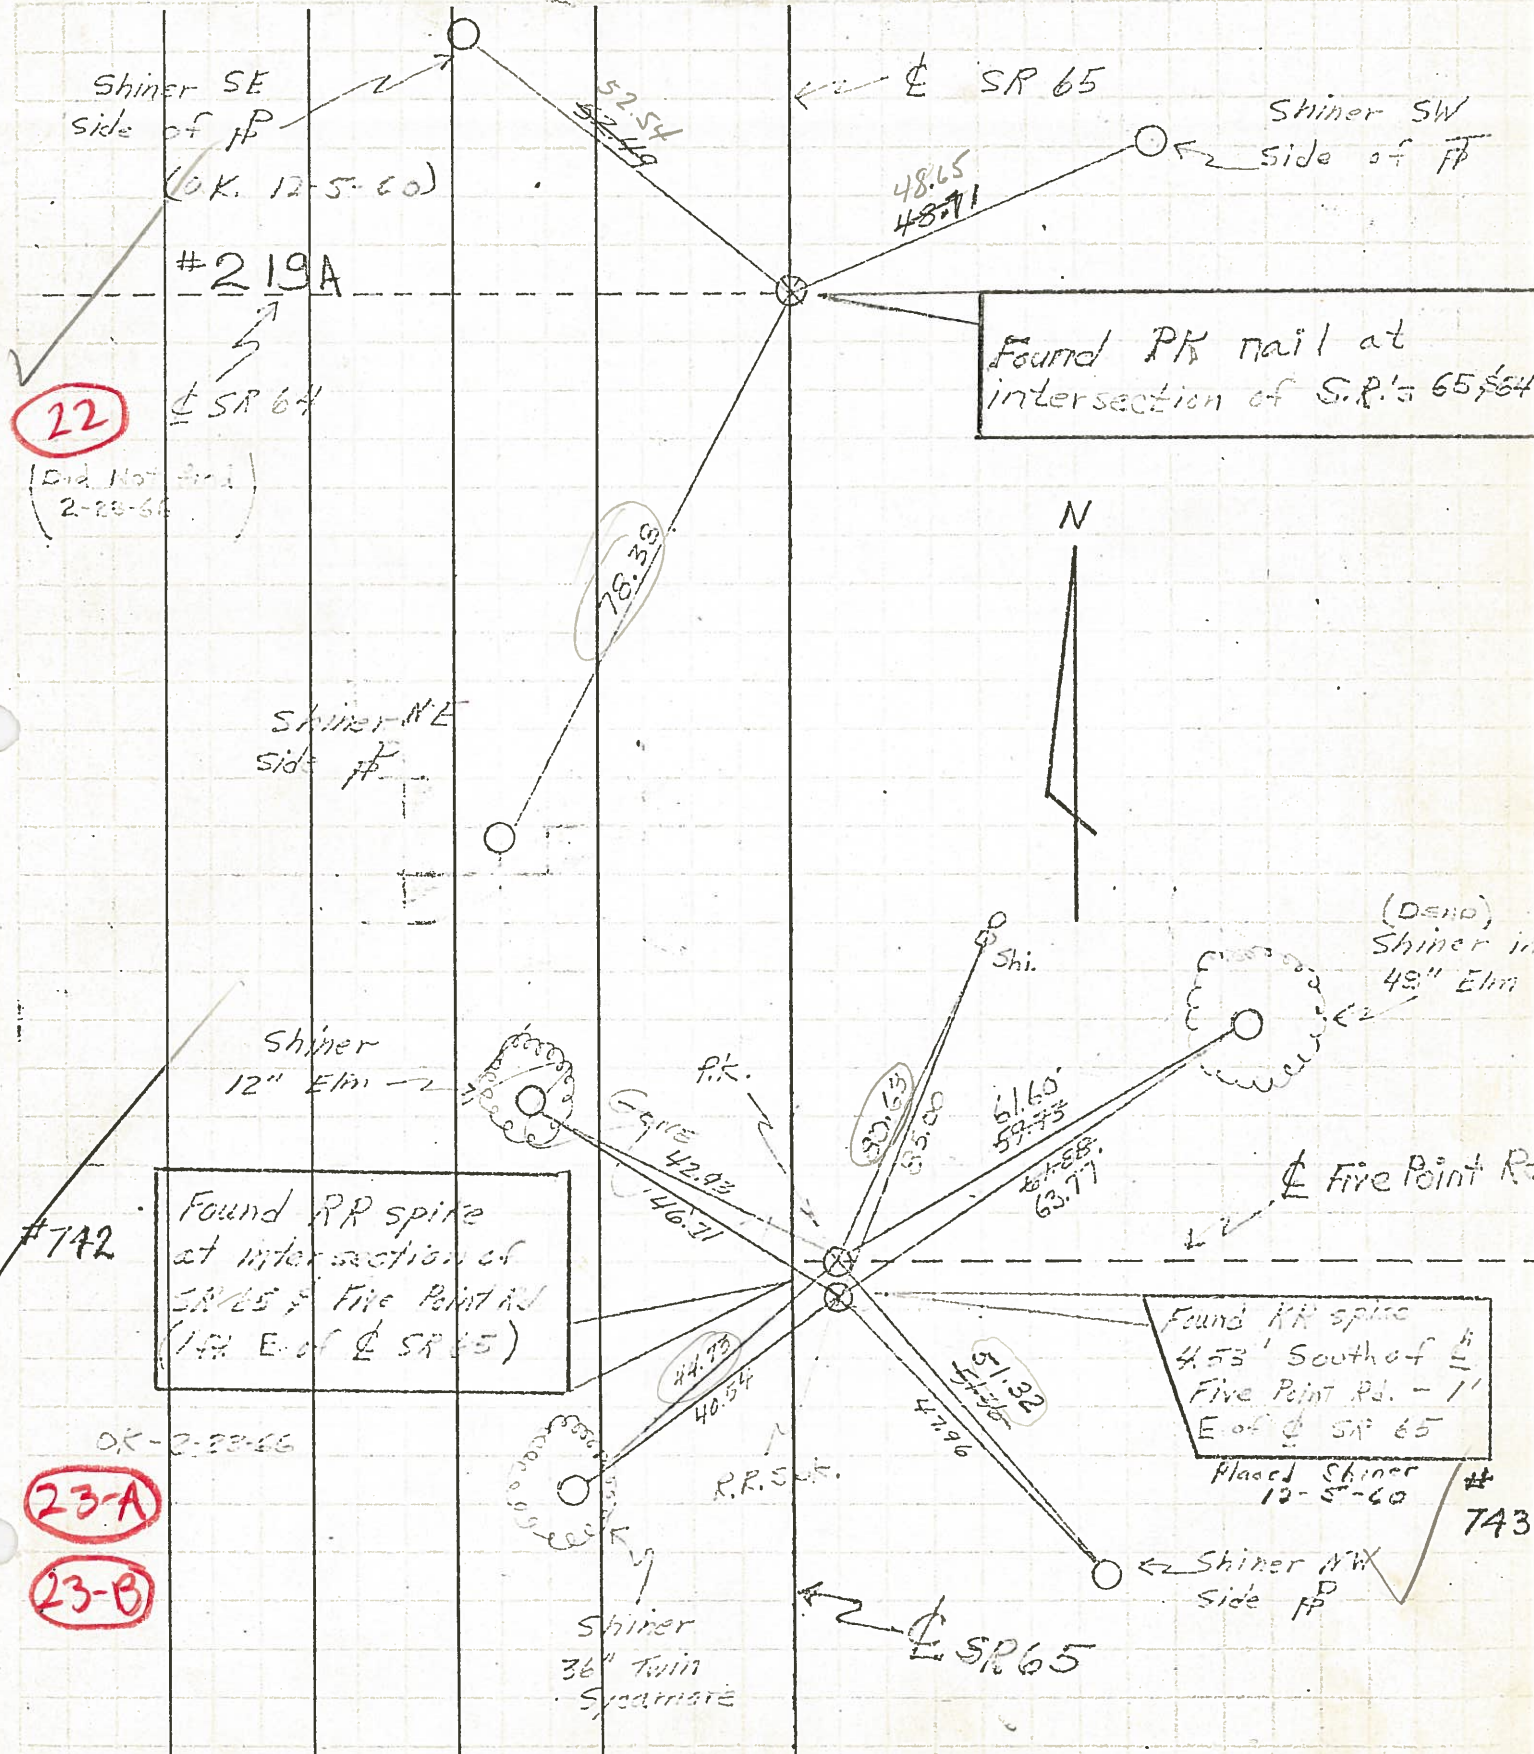 Shiner SE
side of PP
(O.K. 12-5-60)
52.54
52.49
℄ SR 65
Shiner SW
side of
48.65
48.71
#219A
℄ SR 64
22
(Did Not find
2-23-66)
Found PK nail at
intersection of S.R.'s 65 & 64
N
78.38
Shiner NE
side PP
Shi.
(Dead)
Shiner in
48" Elm
Shiner
12" Elm
P.K.
Gone
42.93
46.71
85.00
61.60
59.73
61.88
63.77
℄ Five Point Rd
#742
Found RR spike
at intersection of
SR 65 & Five Point Rd
(1 ft E. of ℄ SR 65)
Found RR spike
4.53' South of ℄
Five Point Rd. - 1'
E of ℄ SR 65
Placed Shiner
12-5-60
#
743
44.73
40.54
51.32
47.96
R.R. Spk.
OK-2-23-66
23-A
23-B
Shiner NW
Side PP
Shiner
36" Twin
Sycamore
℄ SR 65